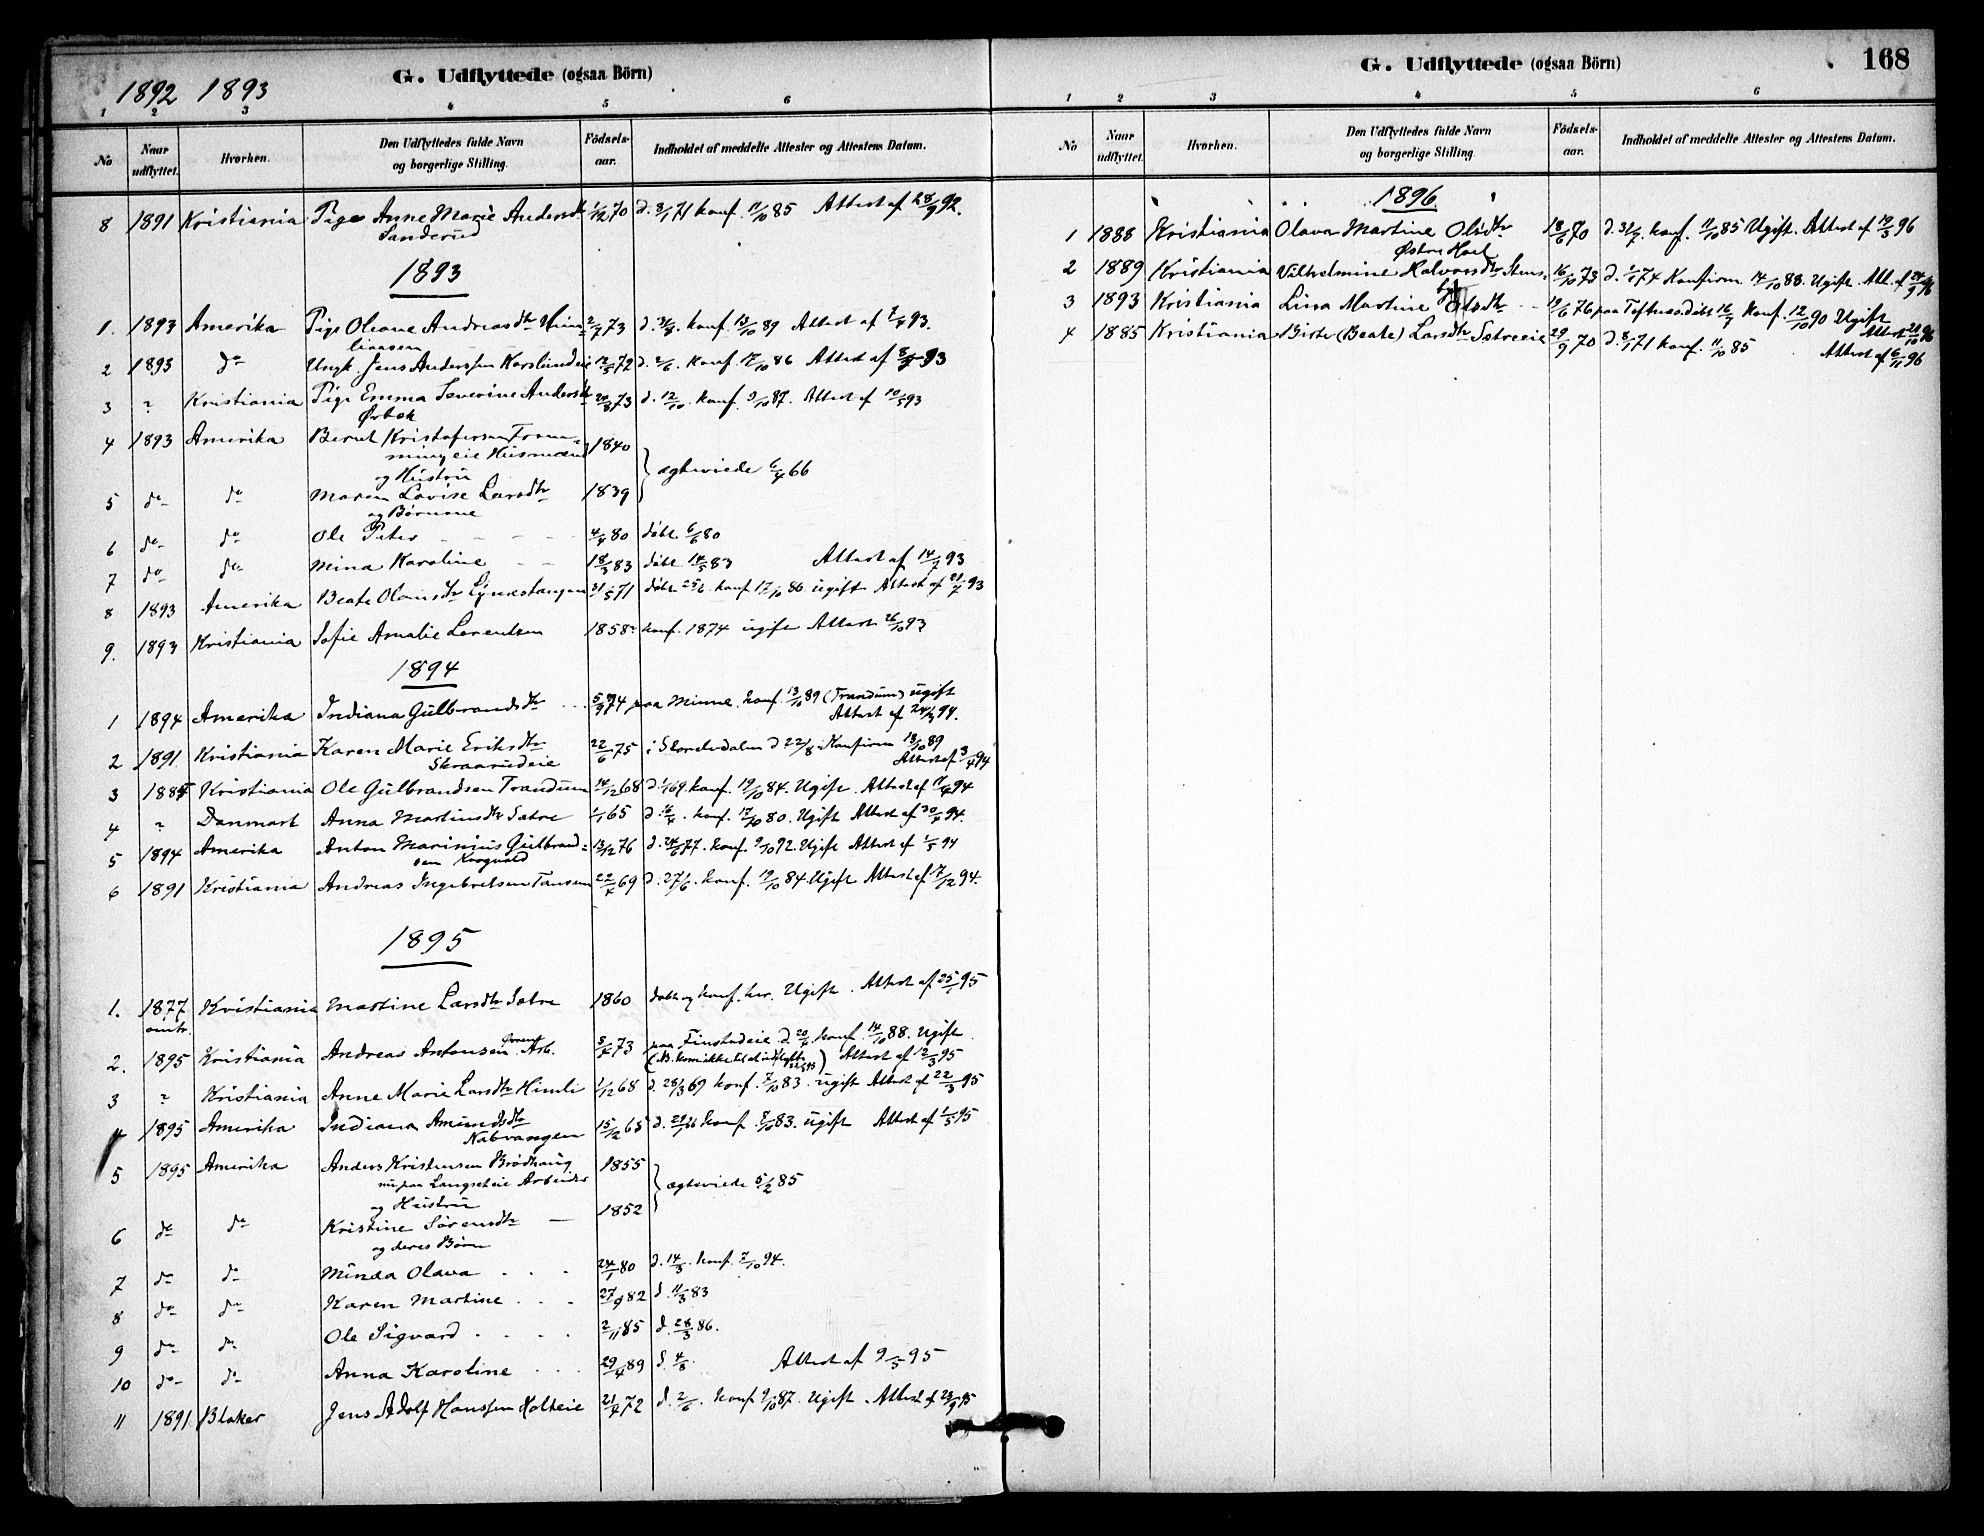 1892 1893
G. Udflyttede (ogsaa Börn)
1 2 3 4 5 6
No Naar udflyttet. Hvorhen. Den Udflyttedes fulde Navn og borgerlige Stilling. Fødsels-aar. Indholdet af meddelte Attester og Attestens Datum.
8 1891 Kristiania Pige Anne Marie Andersdtr 1/12 70 d. 8/1 71 konf. 11/10 85 Attest af 28/9 92.
Sanderud
1893
1. 1893 Amerika Pige Oleave Andreasdtr 2/7 73 d. konf. 13/10 89 Attest af 7/4 93.
2 1893 do Ungk. Jens Anderssen 12/5 72 d. 2/6. konf. 17/10 86 Attest af 93
3 ? Kristiania Pige Emma Severine Andersdtr 20/8 73 d. 12/10. konf. 9/10 87. Attest af 10/5 93
Ørbek
4 1893 Amerika Bernt Kristofersen 1840
Husmand
og Hustru
} ægteviede 6/4 66
5 do do Maren Lovise Larsdtr 1839
og Børnene
6 do do Ole Peter - - - - 4/4 80 døbt 6/6 80
7 do do Mina Karoline - - 18/3 83 døbt 14/5 83 Attest af 14/7 93
8 1893 Amerika Beate Olausdtr 31/5 71 døbt 25/6. konf 17/10 86 ugift Attest af 21/7 93
9. 1893 Kristiania Sofie Amalie Lorentzen 1858? konf. 1874 ugift Attest 26/10 93
1894
1 1894 Amerika Indiana Gulbrandsdtr 5/9 74 paa Minne. konf. 13/10 89 (Trandum) ugift
Attest af 24/3 94.
2 1891 Kristiania Karen Marie Eriksdtr 22/6 75 i Storelvdalen d 22/8. Konfirm 13/10 89
Skraarudeie Attest af 3/4 94
3 Kristiania Ole Gulbrandsen Trandum 14/12 68 d. 1/1 69. konf. 19/10 84. Ugift. Attest af 11/4 94
4 ? Danmark Anna Martinsdtr Sætre 1/1 65 d. 16/4. konf. 17/10 80. Ugift Attest af 30/4 94.
5 1894 Amerika Anton Marinius Gulbrand= 13/12 76 d. 24/6 77. konf. 9/10 92. Ugift Attest af 1/5 94
sen Krogvold
6 1891 Kristiania Andreas Ingebretsen Tansem 22/4 69 d. 27/6. konf. 19/10 84. Ugift Attest af 7/12 94.
1895
1. 1877 Kristiania Martine Larsdtr Sætre 1860 døbt og konf. her. Ugift. Attest af 25/1 95
omtr.
2. 1895 Kristiania Andreas Antonsen Arb. 5/4 73 paa Finstadeie d. 20/4 konf. 14/10 88. Ugift.
Attest af 12/3 95
3 ? Kristiania Anne Marie Larsdtr Himli 1/12 68 d. 28/3 69 konf. 7/10 83. ugift Attest af 22/3 95
4 1895 Amerika Indiana Amundsdtr 15/12 65 d. konf. 7/10 83. ugift Attest af 1/5 95
Nabvangen
5 1895 Amerika Anders Kristensen Brødhaug 1855
nu paa Langseteie Arbeider
og Hustru
} ægteviede 5/2 85
6 do do Kristine Sørensdtr — 1852
og deres Børn
7 do do Minda Olava . . . 24/1 80 d. 14/3. konf. 7/10 94.
8 do do Karen Martine . . . 27/9 82 d. 11/3 83
9 do do Ole Sigvard . . . . 2/11 85 d. 28/3 86.
10 do do Anna Karoline . . . 29/4 89 d. 4/8. Attest af 9/5 95
11 1891 Blaker Jens Adolf Hanssen Holteie 21/4 72 d. 2/6. konf 9/10 87. Ugift. Attest af 23/9 95
G. Udflyttede (ogsaa Börn) 168
1 2 3 4 5 6
No Naar udflyttet. Hvorhen. Den Udflyttedes fulde Navn og borgerlige Stilling. Fødsels-aar. Indholdet af meddelte Attester og Attestens Datum.
1896
1 1888 Kristiania Olava Martine Olsdtr 18/6 70 d. 31/7. konf. 11/10 85 Ugift. Attest af 19/3 96
Østre Hoel
2 1889 Kristiania Vilhelmine Halvorsdtr Stens= 16/10 73 d. 1/1 74 Konfirm. 14/10 88. Ugift. Att. af 24/9 96
by
3 1893 Kristiania Lina Martine Olsdtr 19/6 76 paa døbt 16/7 konf. 12/10 90 Ugift
Attest 21/10 96
4 1885 Kristiania Birte (Beate) Larsdtr Sætreeie 29/9 70 d. 8/1 71 konf. 11/10 85
Attest af 6/11 96